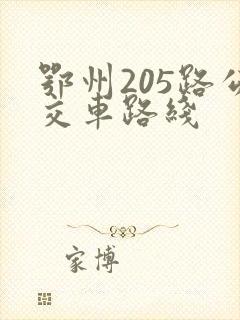 鄂州205路公
交車路綫
家博